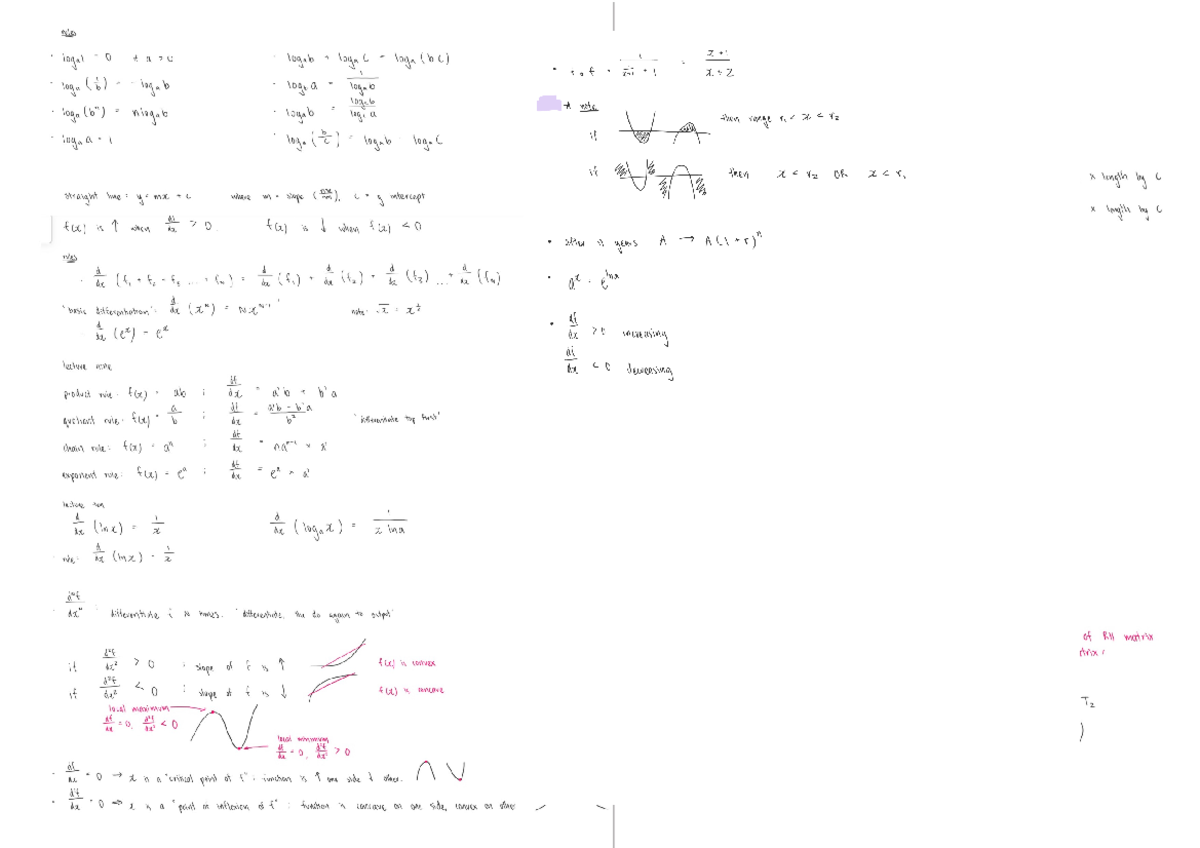 rules
· logₐ1 = 0
· logₐb + logₐc = logₐ(bc)
· logₐ(1/b) = -logₐb
· log_b a = 1/logₐb
· logₐ(bⁿ) = n logₐb
· logₐb =
· logₐa = 1
· logₐ(b/c) = logₐb - logₐc
straight line = y = mx + c where m = slope, c = y intercept
f(x) is ↑ when df/dx > 0. f(x) is ↓ when f'(x) < 0
rules
· d/dx (f₁ + f₂ + f₃ ... + fₙ) = d/dx (f₁) + d/dx (f₂) + d/dx (f₃) ... + d/dx (fₙ)
"basic differentiation": d/dx (xⁿ) = nxⁿ⁻¹ note: √x = x^½
· d/dx (eˣ) = eˣ
lecture
product rule: f(x) = ab ; df/dx = a'b + b'a
quotient rule: f(x) = a/b ; df/dx = a'b - b'a / b² "differentiate top first"
chain rule: f(x) = aⁿ ; df/dx = naⁿ⁻¹ × a'
exponent rule: f(x) = eᵃ ; df/dx = eᵃ × a'
lecture two
d/dx (lnx) = 1/x d/dx (logₐx) = 1/x lna
· rule: d/dx (lnx) = 1/x
· dⁿf/dxⁿ : differentiate f n times. "differentiate, the do again to output"
if d²f/dx² > 0 ; slope of f is ↑ f(x) is convex
if d²f/dx² < 0 ; slope of f is ↓ f(x) is concave
local maximum
df/dx = 0, d²f/dx² < 0
local minimum
df/dx = 0, d²f/dx² > 0
· df/dx = 0 → x is a "critical point of f" ; function is ↑ one side ↓ other.
· d²f/dx² = 0 → x is a "point of inflexion of f" ; function is concave on one side, convex on other
x+1 / x=2
A note
if then range r₁ < x < r₂
if then x < r₂ OR x < r₁
· after n years A → A(1+r)ⁿ
· df/dx > 0 increasing
df/dx < 0 decreasing
x length by c
x length by c
of RH matrix
T₂
)